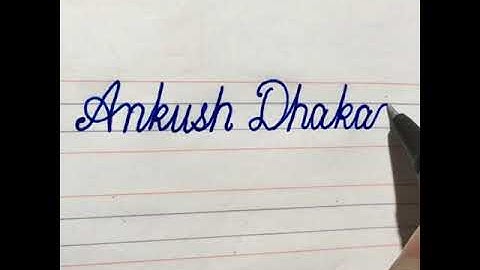 Ankush Dhaka